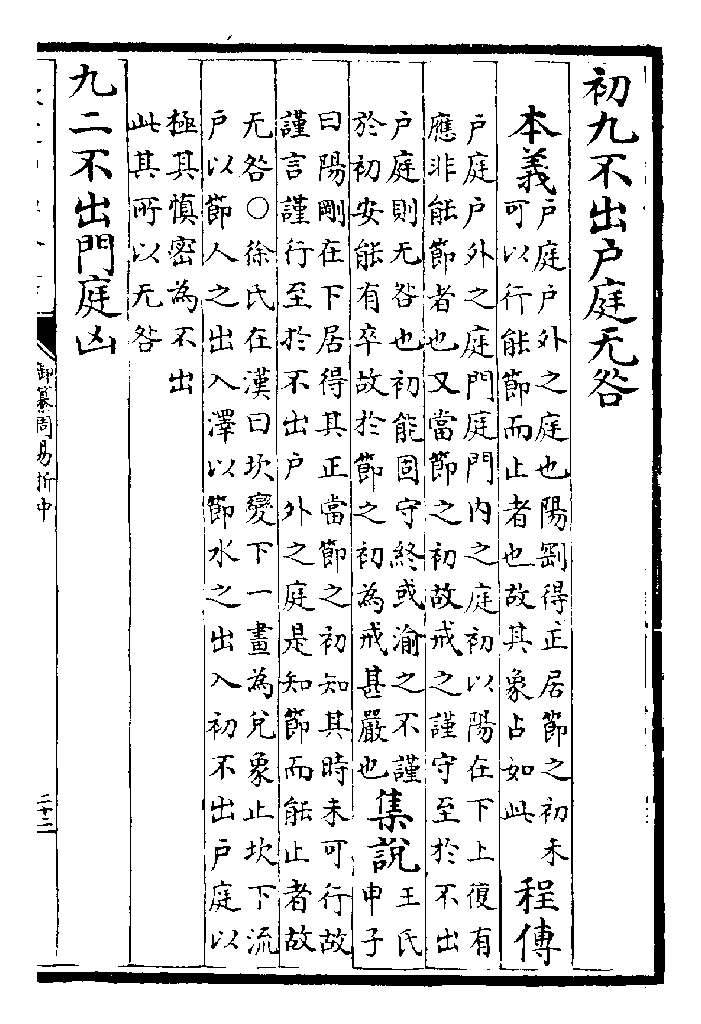 初九不出户庭无咎
本義
户庭户外之庭也陽剛得正居節之初未
可以行能節而止者也故其象占如此
程傳
户庭户外之庭門庭門内之庭初以陽在下上復有
應非能節者也又當節之初故戒之謹守至於不出
户庭則无咎也初能固守終或渝之不謹
於初安能有卒故於節之初為戒甚嚴也
集說
王氏
申子
曰陽剛在下居得其正當節之初知其時未可行故
謹言謹行至於不出户外之庭是知節而能止者故
无咎○徐氏在漢曰坎變下一畫為兌象止坎下流
户以節人之出入澤以節水之出入初不出户庭以
極其慎密為不出
此其所以无咎
九二不出門庭凶
御纂周易折中
二十二